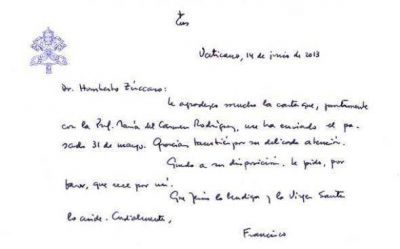 Vaticano, 14 de junio de 2013
Dr. Humberto Zúccaro:
Le agradezco mucho la carta que, juntamente
con la Prof. María del Carmen Rodríguez, me ha enviado el pa-
sado 31 de mayo. Gracias también por su delicada atención.
Quedo a su disposición. Le pido, por
favor, que rece por mí.
Que Jesús lo bendiga y la Virgen Santa
lo cuide. Cordialmente,
Francisco